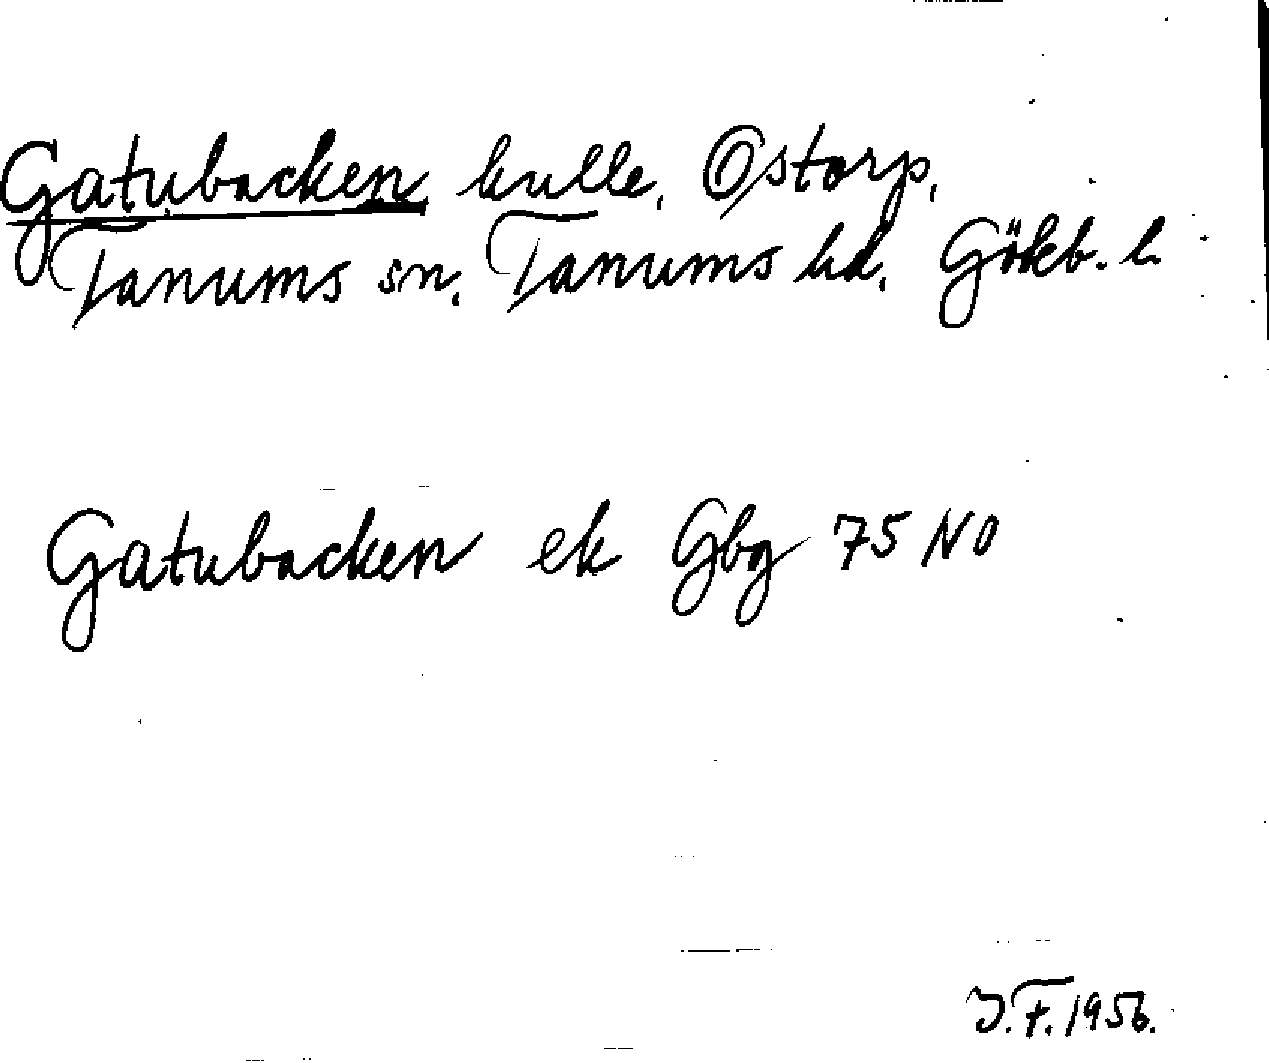 Gatubacken kulle, Ostorp,
Tanums sn. Tanums hd. Gökb. l.
Gatubacken ek Gbg 75 NO
J.F. 1956.